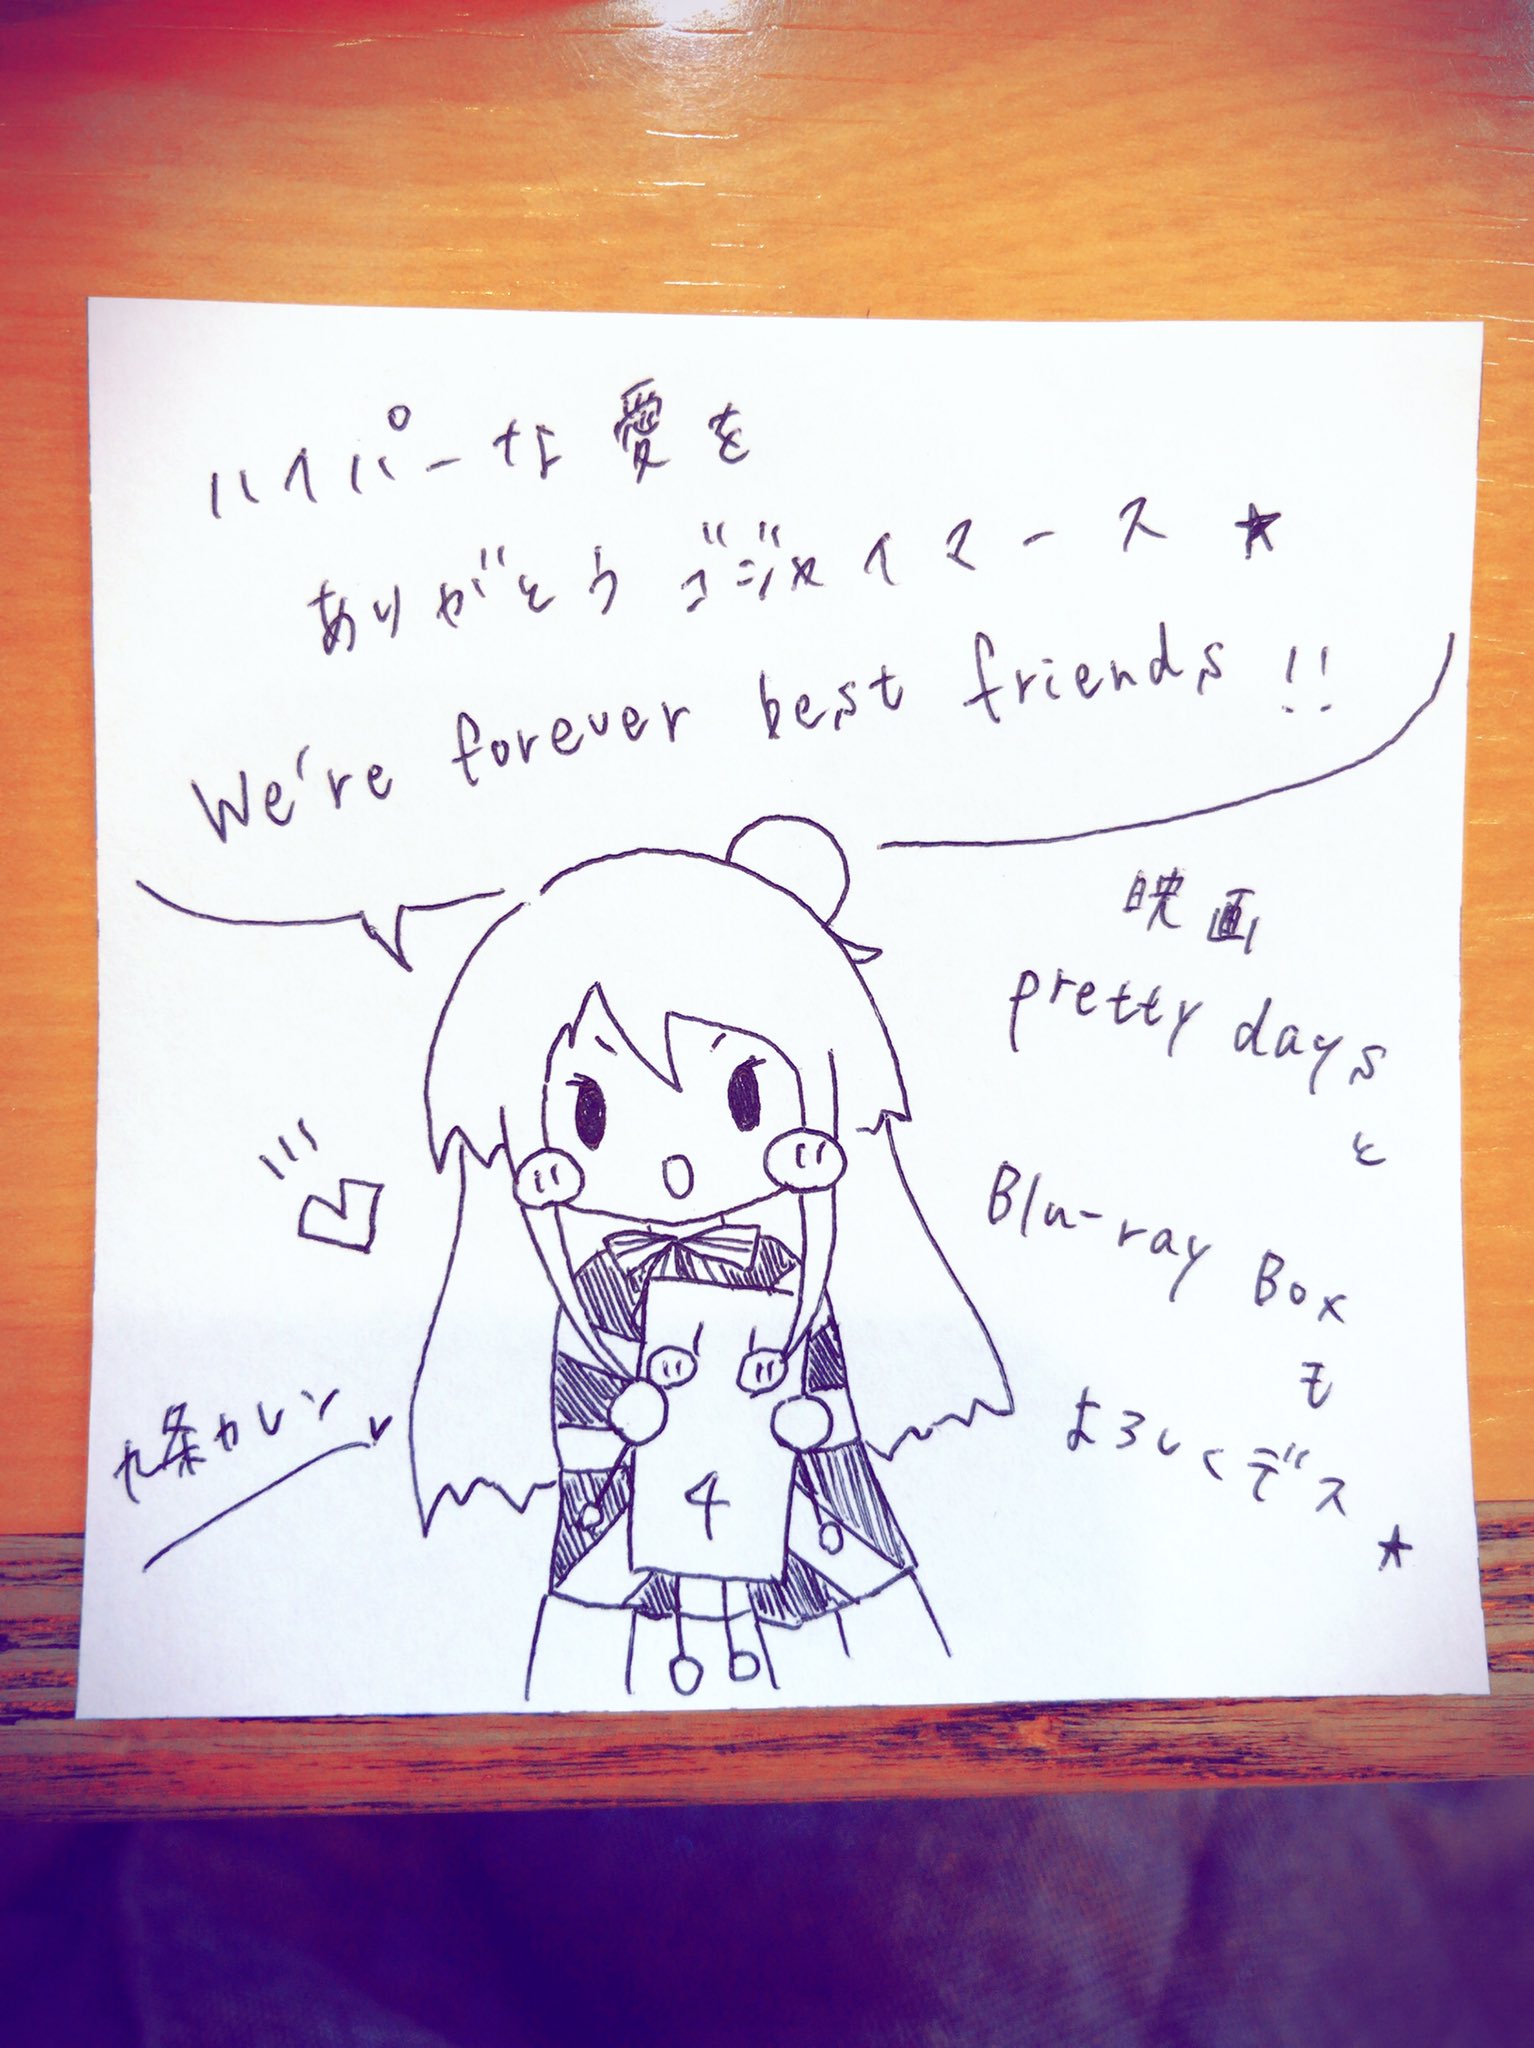 ハイパーな愛を
ありがとうゴジャイマース★
We're forever best friends!!
映画
pretty days
と
Blu-ray Box
も
よろしくデス
★
九条カレン
4